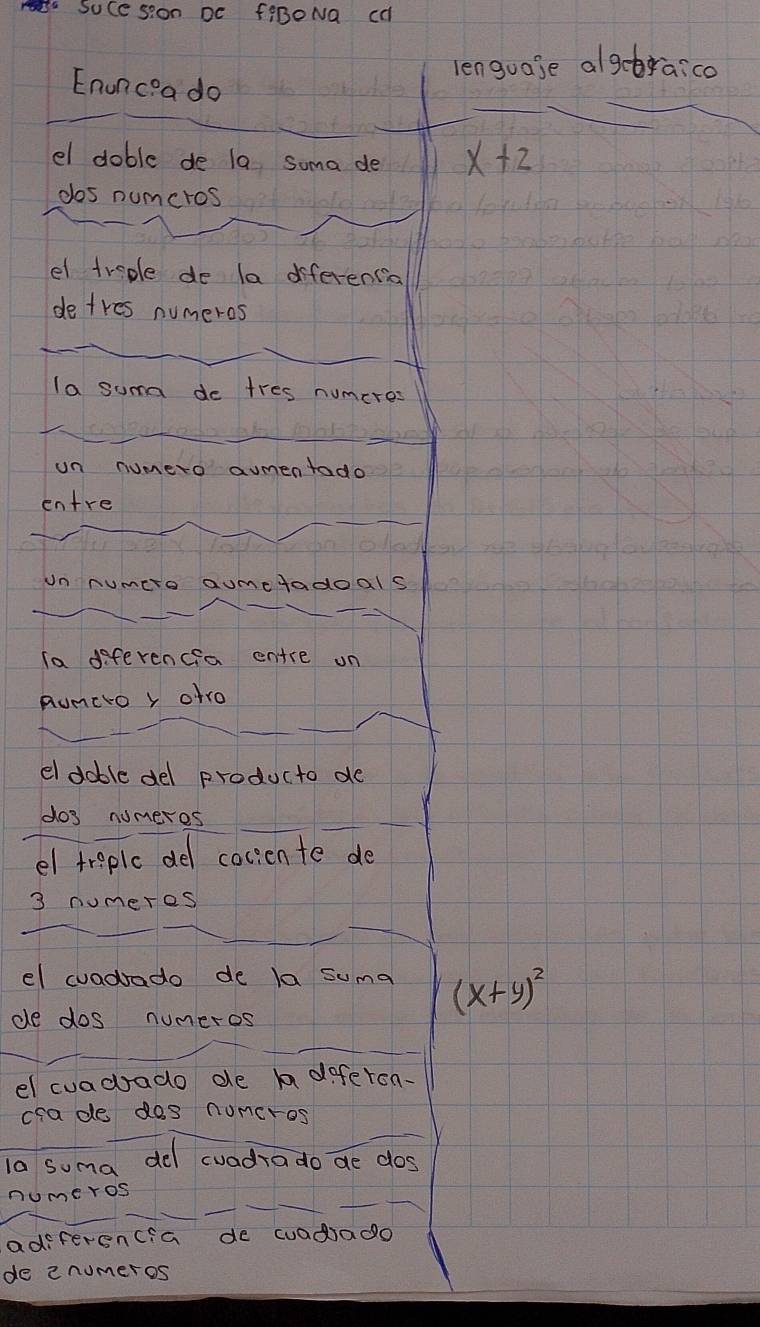 Sucesion De fiBoNa cci
Enunciado
lenguaje algebraico
el doble de la suma de
dos numeros
x+2
el treple de la diferensia
de tres numeros
la suma de tres numeros
un numero aumentado
entre
un numero aumetado al 5
la diferencia entre un
numero y otro
el doble del producto de
dos numeros
el triple del cociente de
3 numeros
el cuadrado de la suma
de dos numeros
(x+y)²
el cuadrado de la diferen-
cia de dos numeros
la suma del cuadrado de dos
numeros
adiferencia de cuadrado
de 2 numeros